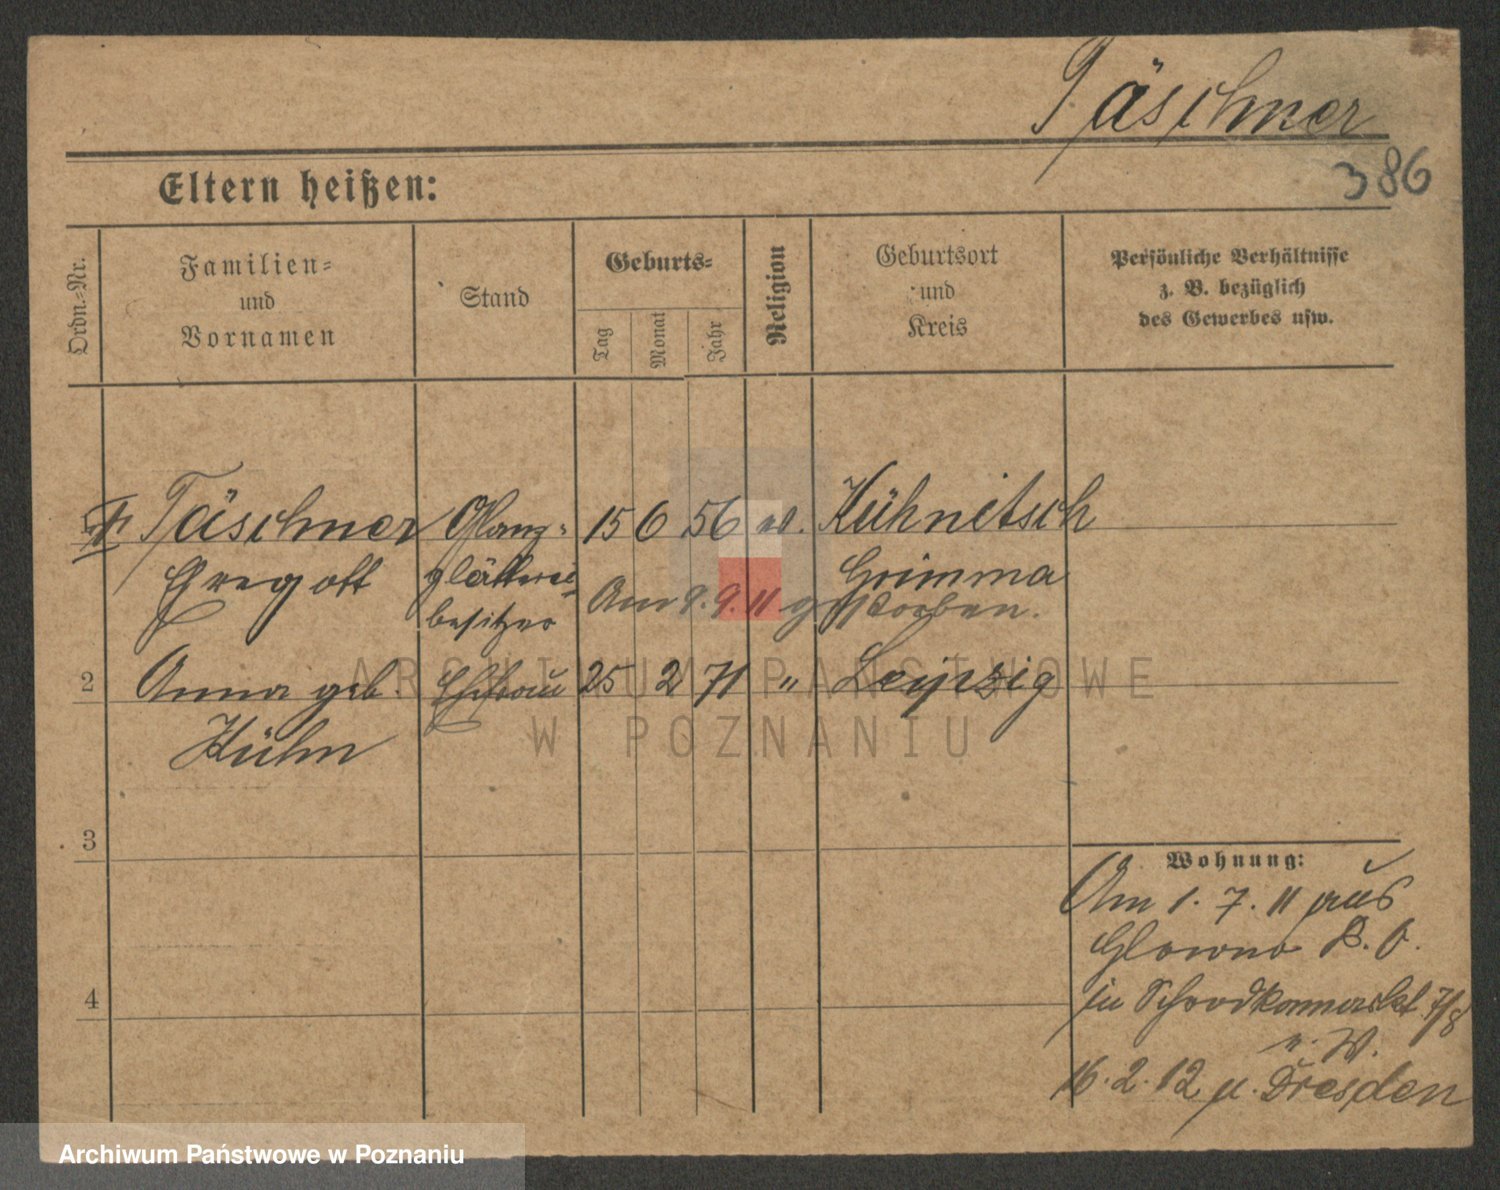 Täschner
386
Eltern heißen:
Ordn.=Nr.
Familien=
und
Vornamen
Stand
Geburts=
Tag
Monat
Jahr
Religion
Geburtsort
und
Kreis
Persönliche Verhältnisse
z. B. bezüglich
des Gewerbes usw.
1 Täschner Glanz= 15 6 56 ev. Kühnitsch
Gregott glätterei= Grimma
besitzer Am 9. 9. 11 gestorben.
2 Anna geb. Ehefrau 25 2 71 " Leipzig
Kühn
3
4
Wohnung:
Am 1. 7. 11 aus
Glowno P. O.
in 7/8
v. W.
16. 2. 12 n. Dresden
ARCHIWUM PAŃSTWOWE
W POZNANIU
Archiwum Państwowe w Poznaniu